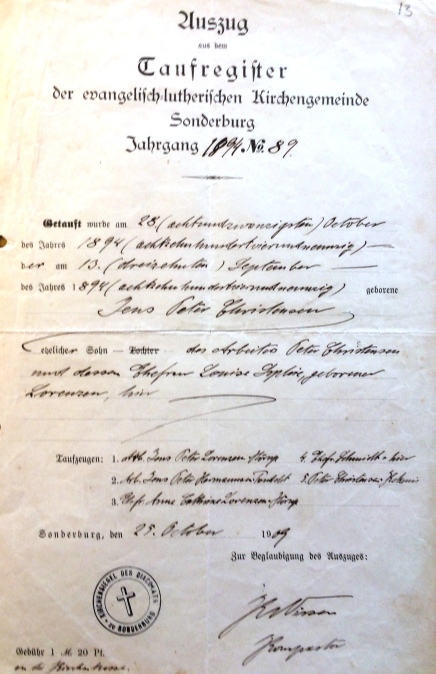 13
Auszug
aus dem
Taufregister
der evangelisch-lutherischen Kirchengemeinde
Sonderburg
Jahrgang 1894 No. 89.
Getauft wurde am 28. (achtundzwanzigsten) October
des Jahres 1894 (achtzehnhundertvierundneunzig)
der am 13. (dreizehnten) September
des Jahres 1894 (achtzehnhundertvierundneunzig) geborene
Jens Peter Christensen
ehelicher Sohn Tochter des Arbeiters Peter Christensen
und dessen Ehefrau Louise Sophie, geborener
Lorenzen, hier
Taufzeugen: 1. Arb. Jens Peter Lorenzen 4. Ehefr. Schmidt - hier
2. Arb. Jens Peter Hermannsen 5. Peter Christensen
3. Ehefr. Anne Cathrine Lorenzen
Sonderburg, den 25. October 1909
Zur Beglaubigung des Auszuges:
Gebühr 1 M. 20 Pf.
an die Kirchenkasse.